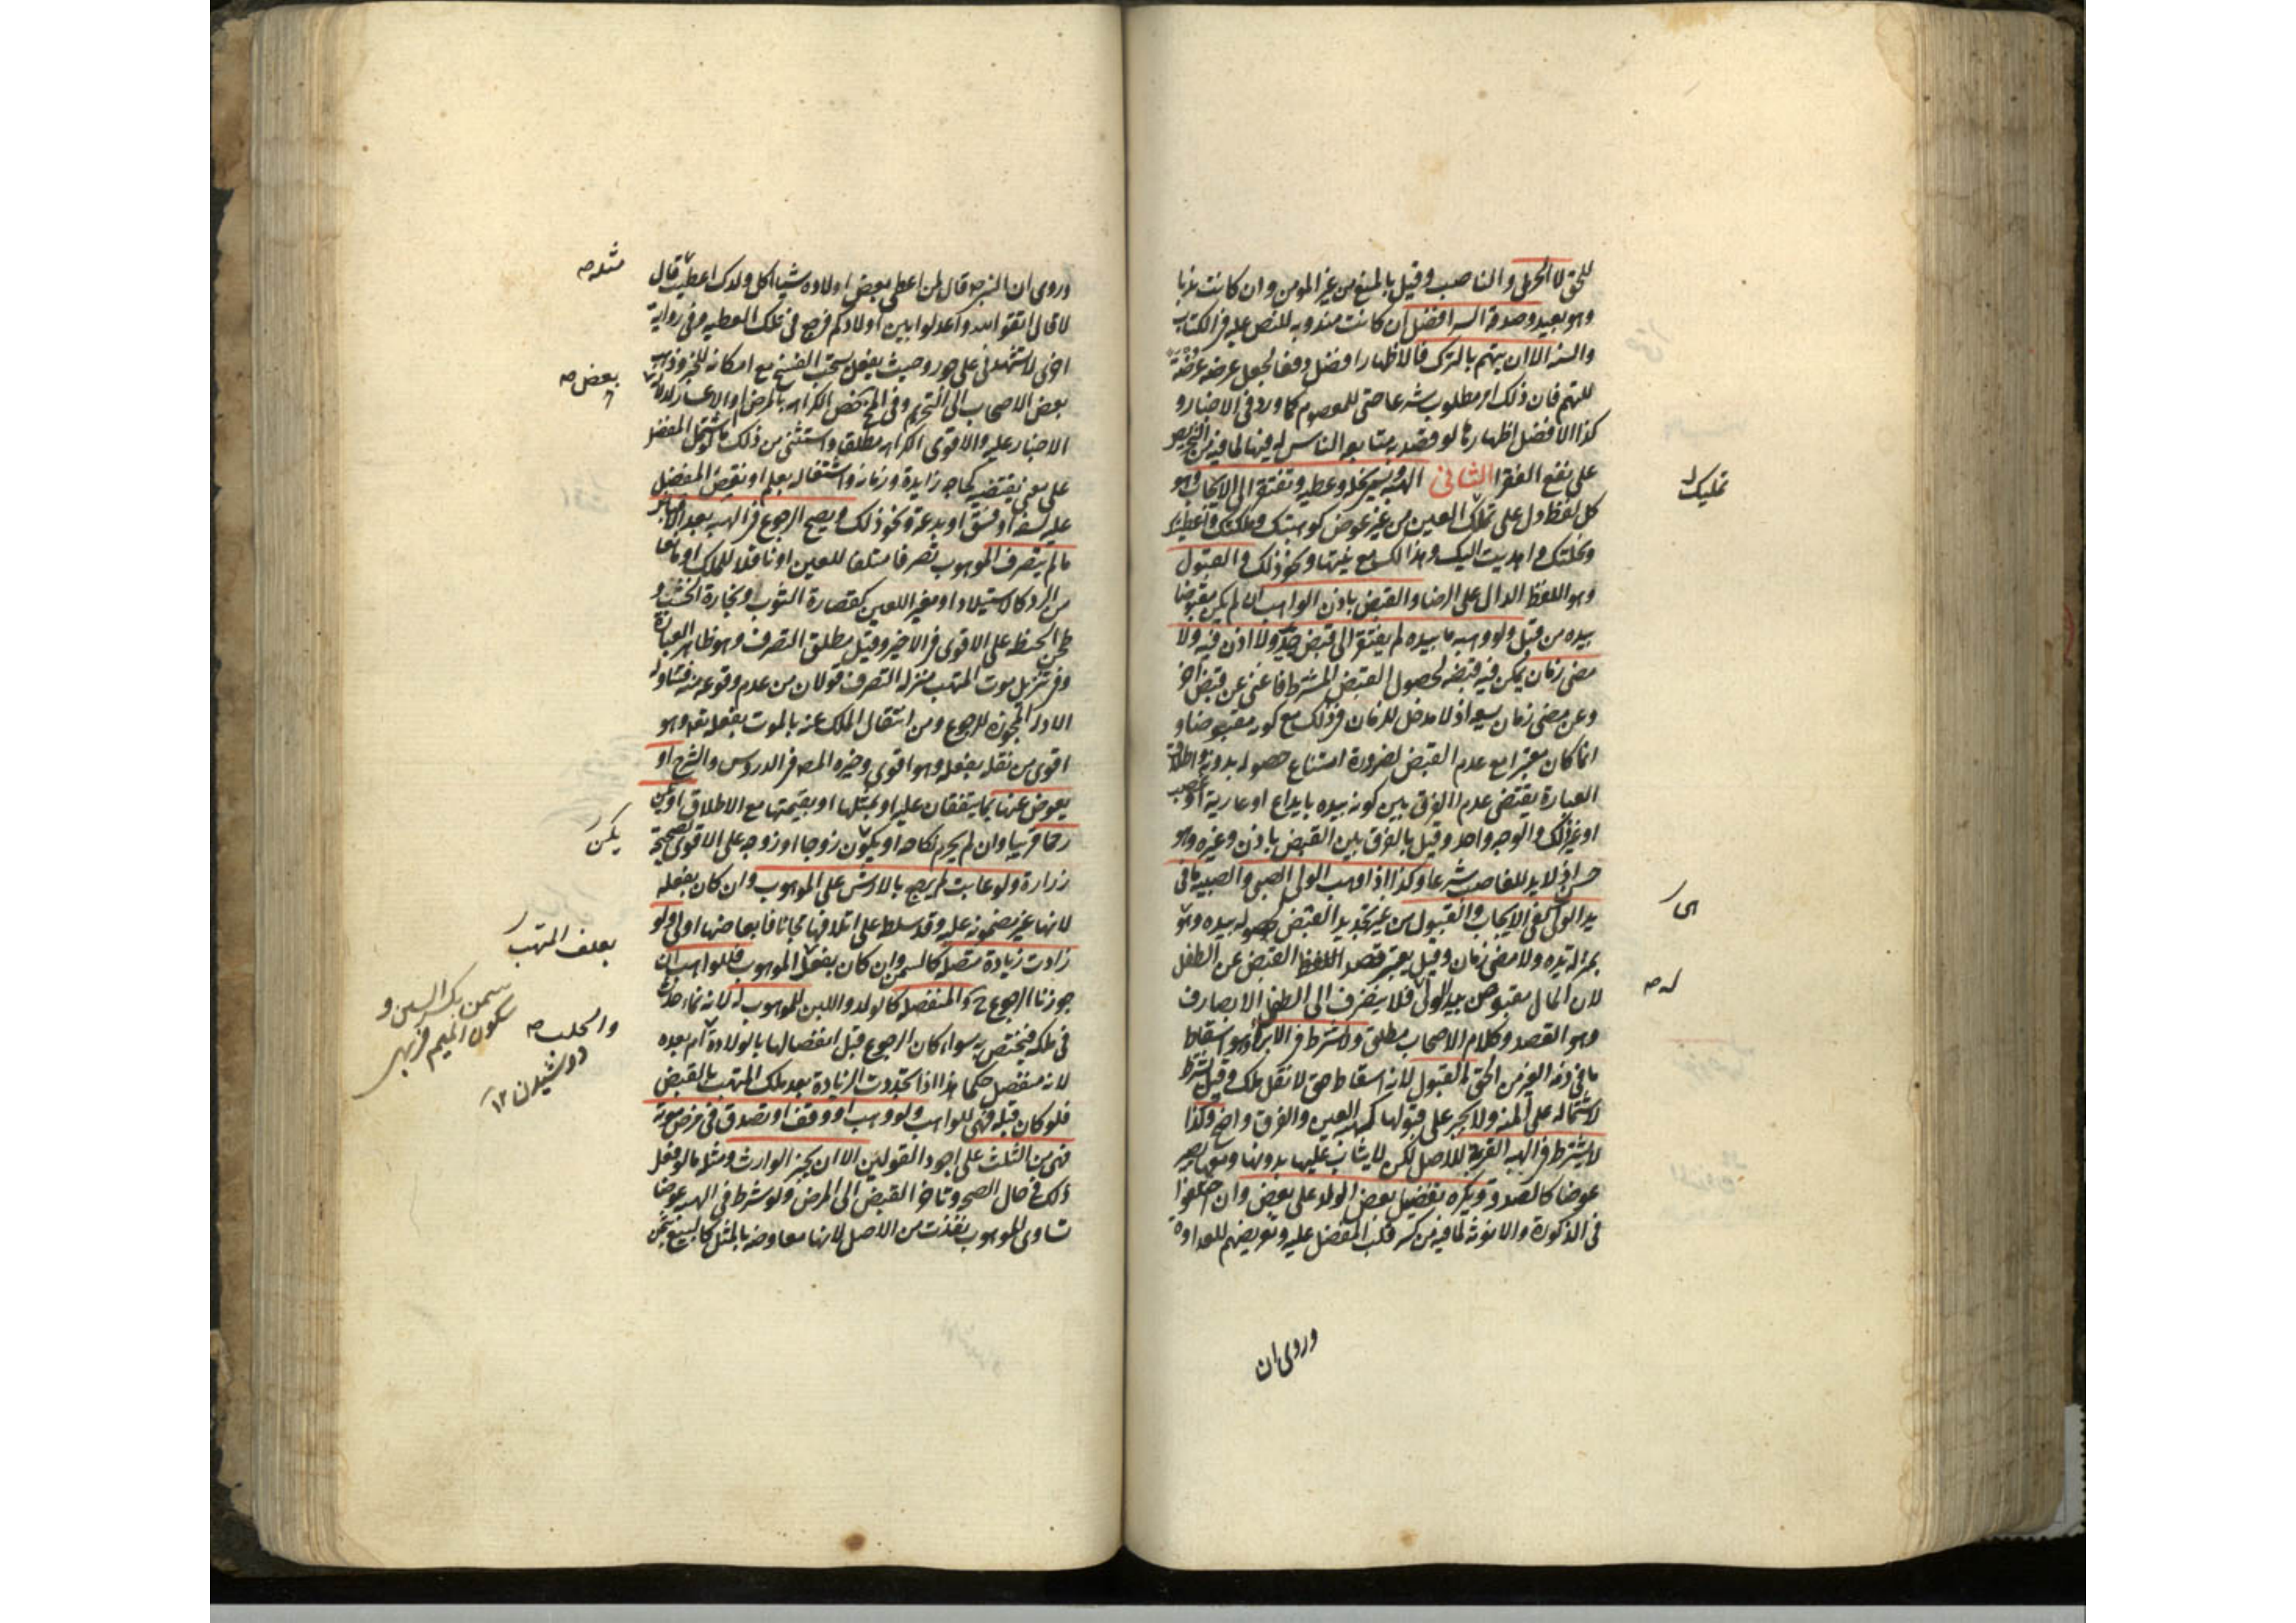 للحق لا الحربي والناصب وقيل بالمنع من غير المومن وان كانت ندبا
وهو بعيد وصدقة السر افضل ان كانت مندوبه للنص عليه في الكتاب
والسنه الا ان يتهم بالترك فالاظهار افضل دفعا لجعل عرضه عرضة
للتهم فان ذلك امر مطلوب شرعا حتى للمعصوم كما ورد في الاخبار و
كذا الافضل اظهارها لو قصد به متابعه الناس له فيها لما فيه من التحريص
على نفع الفقرا الثانى الهبه ويسمى نحله وعطيه وتفتقر الى الايجاب وهو
كل لفظ دل على تملك العين من غير عوض كوهبتك وملكتك واعطيتك
ونحلتك واهديت اليك وهذا لك مع نيتها ونحو ذلك والقبول
وهو اللفظ الدال على الرضا والقبض باذن الواهب ان لم يكن مقبوضا
بيده من قبل ولو وهبه ما بيده لم يفتقر الى قبض جديد ولا اذن فيه ولا
مضى زمان يمكن فيه قبضه لحصول القبض المشترط فاغنى عن قبض اخر
وعن مضى زمان يسعه اذ لا مدخل للزمان في ذلك مع كونه مقبوضا و
انما كان معتبرا مع عدم القبض لضرورة امتناع حصوله بدونه واطلاق
العبارة يقتضى عدم الفرق بين كونه بيده بايداع او عارية او غصب
او غير ذلك والوجه واحد وقيل بالفرق بين القبض باذن وغيره وهو
حسن اذ لا يد للغاصب شرعا وكذا اذا وهب الولى الصبى والصبيه ما فى
يد الولى كفى الايجاب والقبول من غير تجديد القبض لحصوله بيده وهو
بمنزله يده ولا مضى زمان وقيل يعتبر قصد القبض عن الطفل
لان المال مقبوض بيد الولى فلا ينصرف الى الطفل الا بصارف
وهو القصد وكلام الاصحاب مطلق ولا يشترط فى الابراء وهو اسقاط
ما فى ذمه الغير من الحق القبول لانه اسقاط حق لا نقل ملك وقيل يشترط
لاشتماله على المنه ولا يجبر على قبولها كهبه العين والفرق واضح وكذا
لا يشترط فى الهبه القربه للاصل لكن لا يثاب عليها بدونها ومعها يصير
عوضا كالصدقة ويكره تفضيل بعض الولد على بعض وان اختلفوا
فى الذكورة والانوثه لما فيه من كسر قلب المفضل عليه وتعريضهم للعداوة
تمليك
ايجار
له صه
وروى ان
وروى ان النبي صه قال لمن اعطى بعض اولاده شيئا اكل ولدك اعطيت قال
لا قال اتقوا الله واعدلوا بين اولادكم فرجع فى تلك العطيه وفى رواية
اخرى لا تشهدنى على جور وحيث يفعل يستحب الفسخ مع امكانه للخبر وذهب
بعض الاصحاب الى التحريم وفى المخ يخص الكراهه بالمرض او الاعسار لدلالة
الاخبار عليه والاقوى الكراهه مطلقا واستثنى من ذلك ما لو اشتمل المفضل
على معنى يقتضيه كحاجه زايدة وزمانه واشتغاله بعلم او نقص المفضل
عليه بسفه او فسق او بدعة ونحو ذلك ويصح الرجوع فى الهبه بعد الاقباض
ما لم يتصرف الموهوب تصرفا متلفا للعين او ناقلا للملك او مانعا
من الرد كالاستيلاد او مغير اللعين كقصارة الثوب ونجارة الخشب و
طحن الحنطه على الاقوى فى الاخير وقيل مطلق التصرف وهو ظاهر العبارة
وفى تنزيل موت المتهب منزله التصرف قولان من عدم وقوعه منه فتناوله
الادله المجوزه للرجوع ومن انتقال الملك عنه بالموت بفعله تعه وهو
اقوى من نقله بفعله وهو اقوى وخيره المصه فى الدروس والشرح او
يعوض عنها بما يتفقان عليه او بمثلها او بقيمتها مع الاطلاق او يكن
رحما قريبا وان لم يحرم نكاحه او يكون زوجا او زوجه على الاقوى لصحيحة
زرارة ولو عابت لم يرجع بالارش على الموهوب وان كان بفعله
لانها غير مضمونه عليه وقد سلطه على اتلافها مجانا فابعاضها اولى ولو
زادت زيادة متصله كالسمن وان كان بفعل الموهوب فللواهب ان
جوزنا الرجوع ح والمنفصله كالولد واللبن للموهوب له لانه نماء حدث
فى ملكه فيختص به سواء كان الرجوع قبل انفصالها بالولادة ام بعده
لانه منفصل حكما هذا اذا تجددت الزيادة بعد ملك المتهب بالقبض
فلو كان قبله فهى للواهب ولو وهب او وقف او تصدق فى مرض موته
فهى من الثلث على اجود القولين الا ان يجيز الوارث ومثله ما لو فعل
ذلك فى حال الصحه وتاخر القبض الى المرض ولو شرط فى الهبه عوضا
تساوى للموهوب نفذت من الاصل لانها معاوضه بالمثل كالبيع بثمن
مثله صه
بعض صه
يكن
بعلف المتهب
والحلب صه
سمن بكسر السين و
سكون الميم فربهى